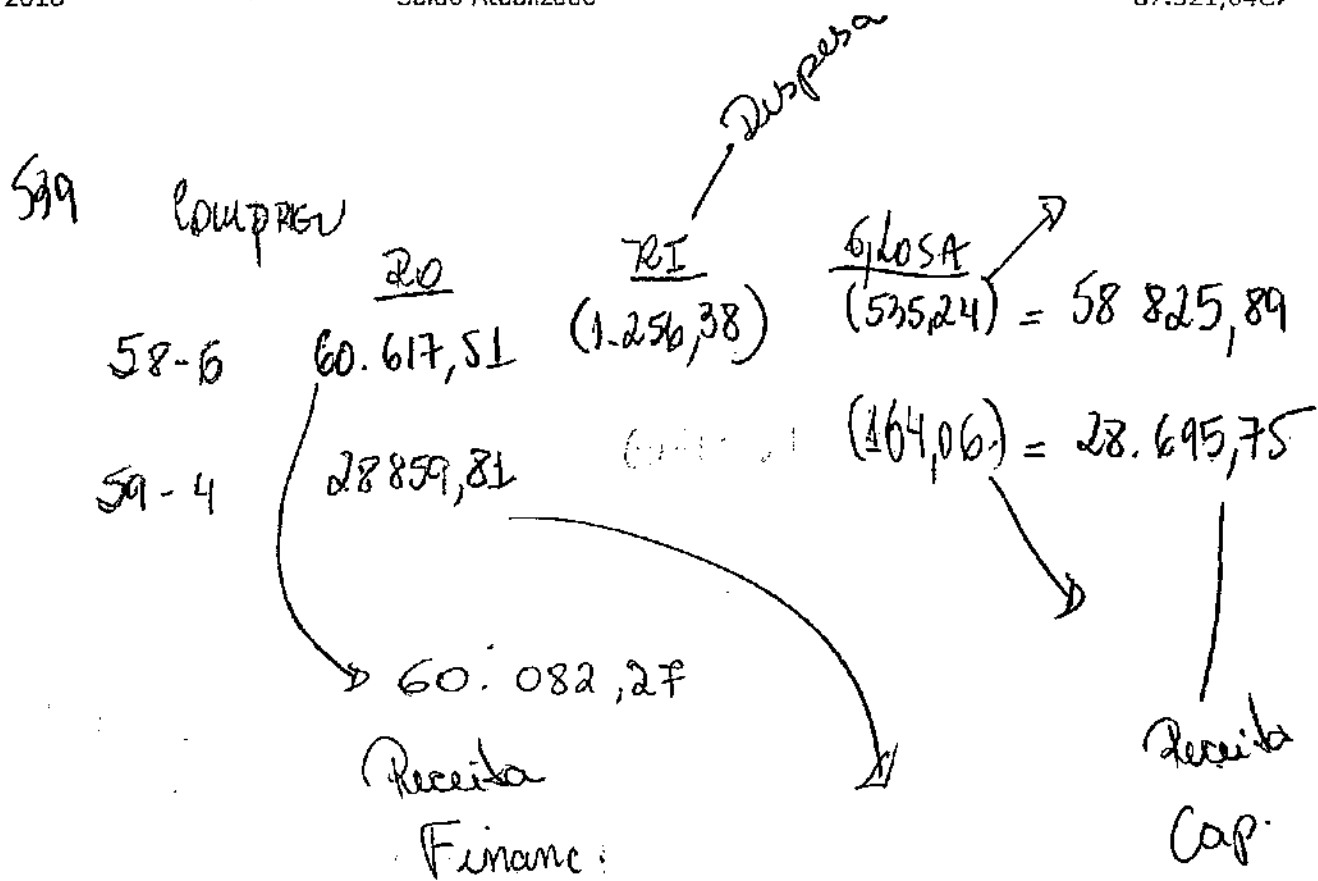 Despesa
539 COMPREV
RO RI GLOSA
58-6 60.617,51 (1.256,38) (535,24) = 58 825,89
59-4 28 859,81 (164,06) = 28.695,75
60.082,27
Receita
Financ.
Receita
Cap.